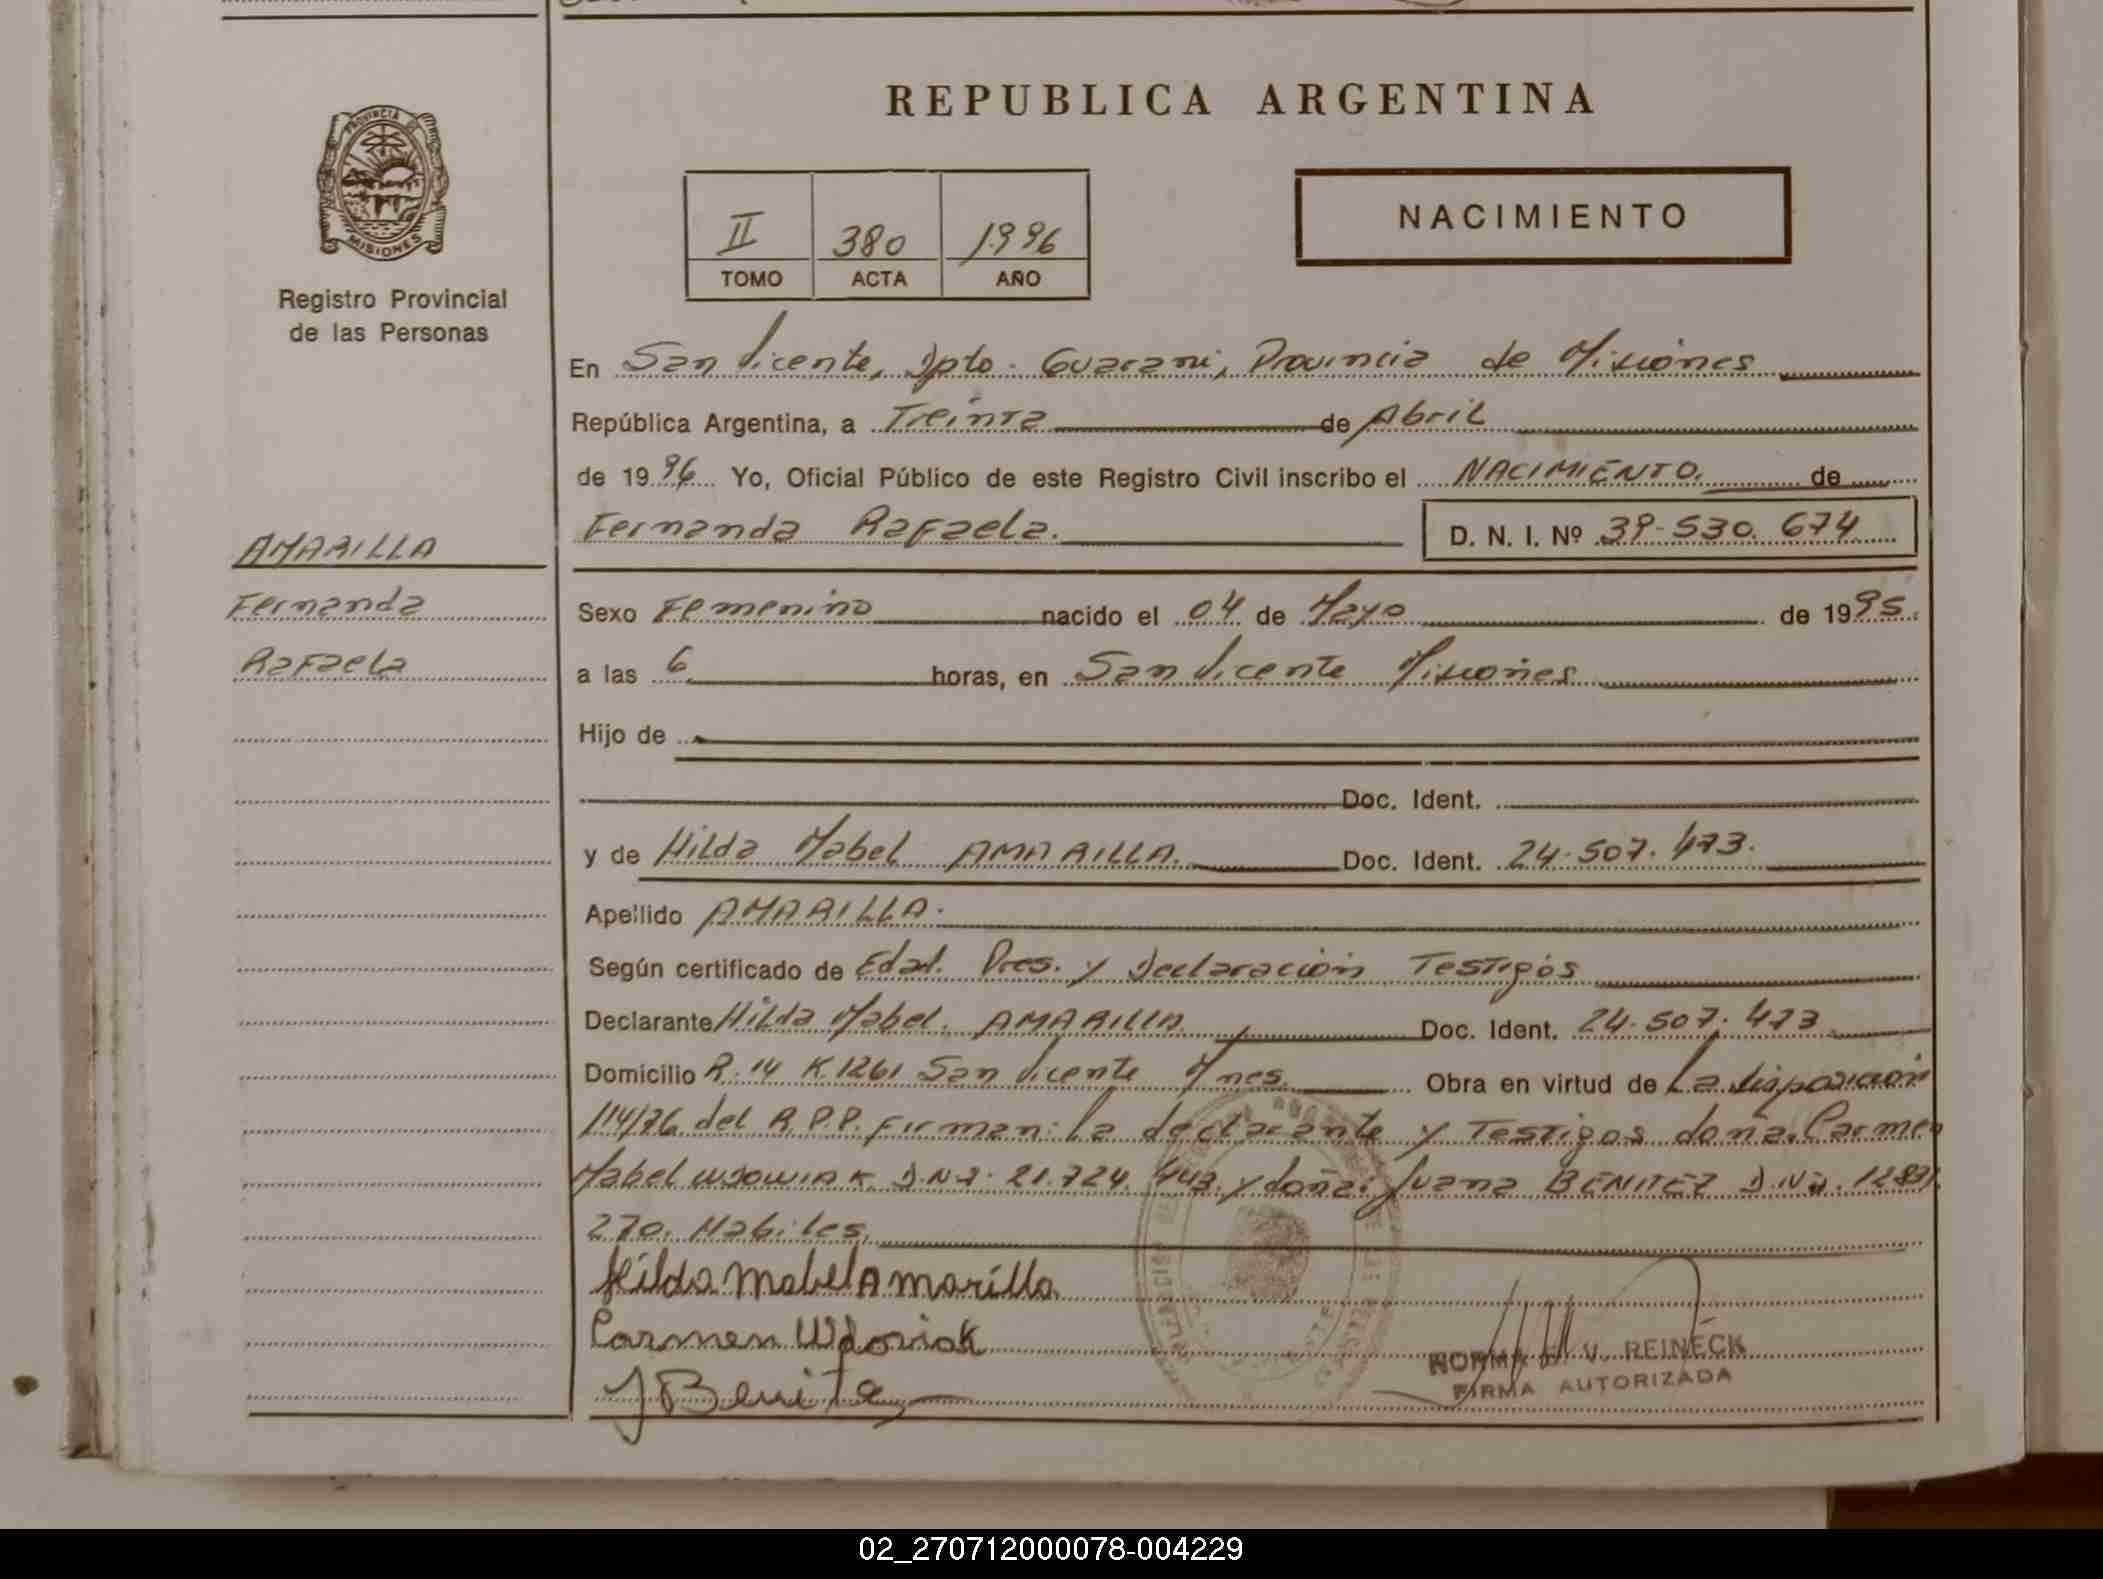 REPUBLICA ARGENTINA
PROVINCIA DE
MISIONES
Registro Provincial
de las Personas
II 380 1996
TOMO ACTA AÑO
NACIMIENTO
En San Vicente, Dpto. Guarani, Provincia de Misiones
República Argentina, a Treinta de Abril
de 1996 Yo, Oficial Público de este Registro Civil inscribo el NACIMIENTO. de
Fernanda Rafaela. D. N. I. Nº 39.530.674
AMARILLA
Fernanda
Rafaela
Sexo Femenino nacido el 04 de Mayo de 1995.
a las 6 horas, en San Vicente Misiones
Hijo de
Doc. Ident.
y de Hilda Mabel AMARILLA. Doc. Ident. 24.507.473.
Apellido AMARILLA.
Según certificado de Edad. Pres. y Declaración Testigos
Declarante Hilda Mabel. AMARILLA Doc. Ident. 24.507.473
Domicilio R. 14 K.1261 San Vicente Mnes. Obra en virtud de La disposicion
114/76 del R.P.P. Firman: la declarante y Testigos doña. Carmen
Mabel WDOWIAK D.N.I. 21.724.443. y doña: Juana BENITEZ D.N.I. 12.831.
270. Habiles.
Hilda Mabel Amarilla
Carmen Wdoviak
J Benitez
NORMA V. REINECK
FIRMA AUTORIZADA
02_270712000078-004229